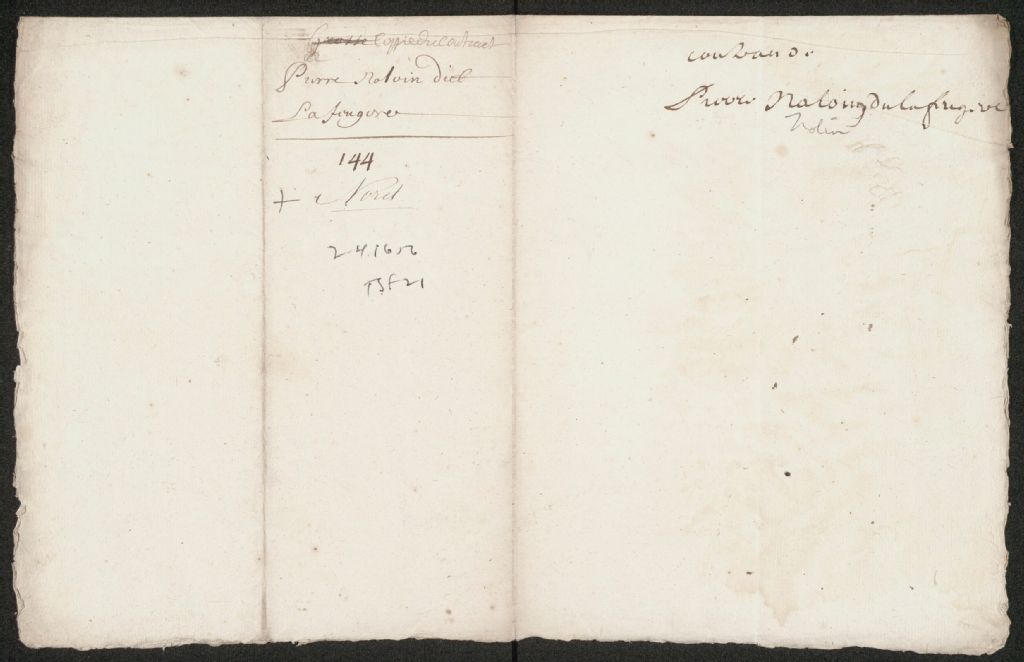 Grosse Coppie du Contract
de
Pierre Nolvin dict
La fougere
144
+ Noret
2.4.1656
TSF21
Pierre Naloing du la fougere
Nolin